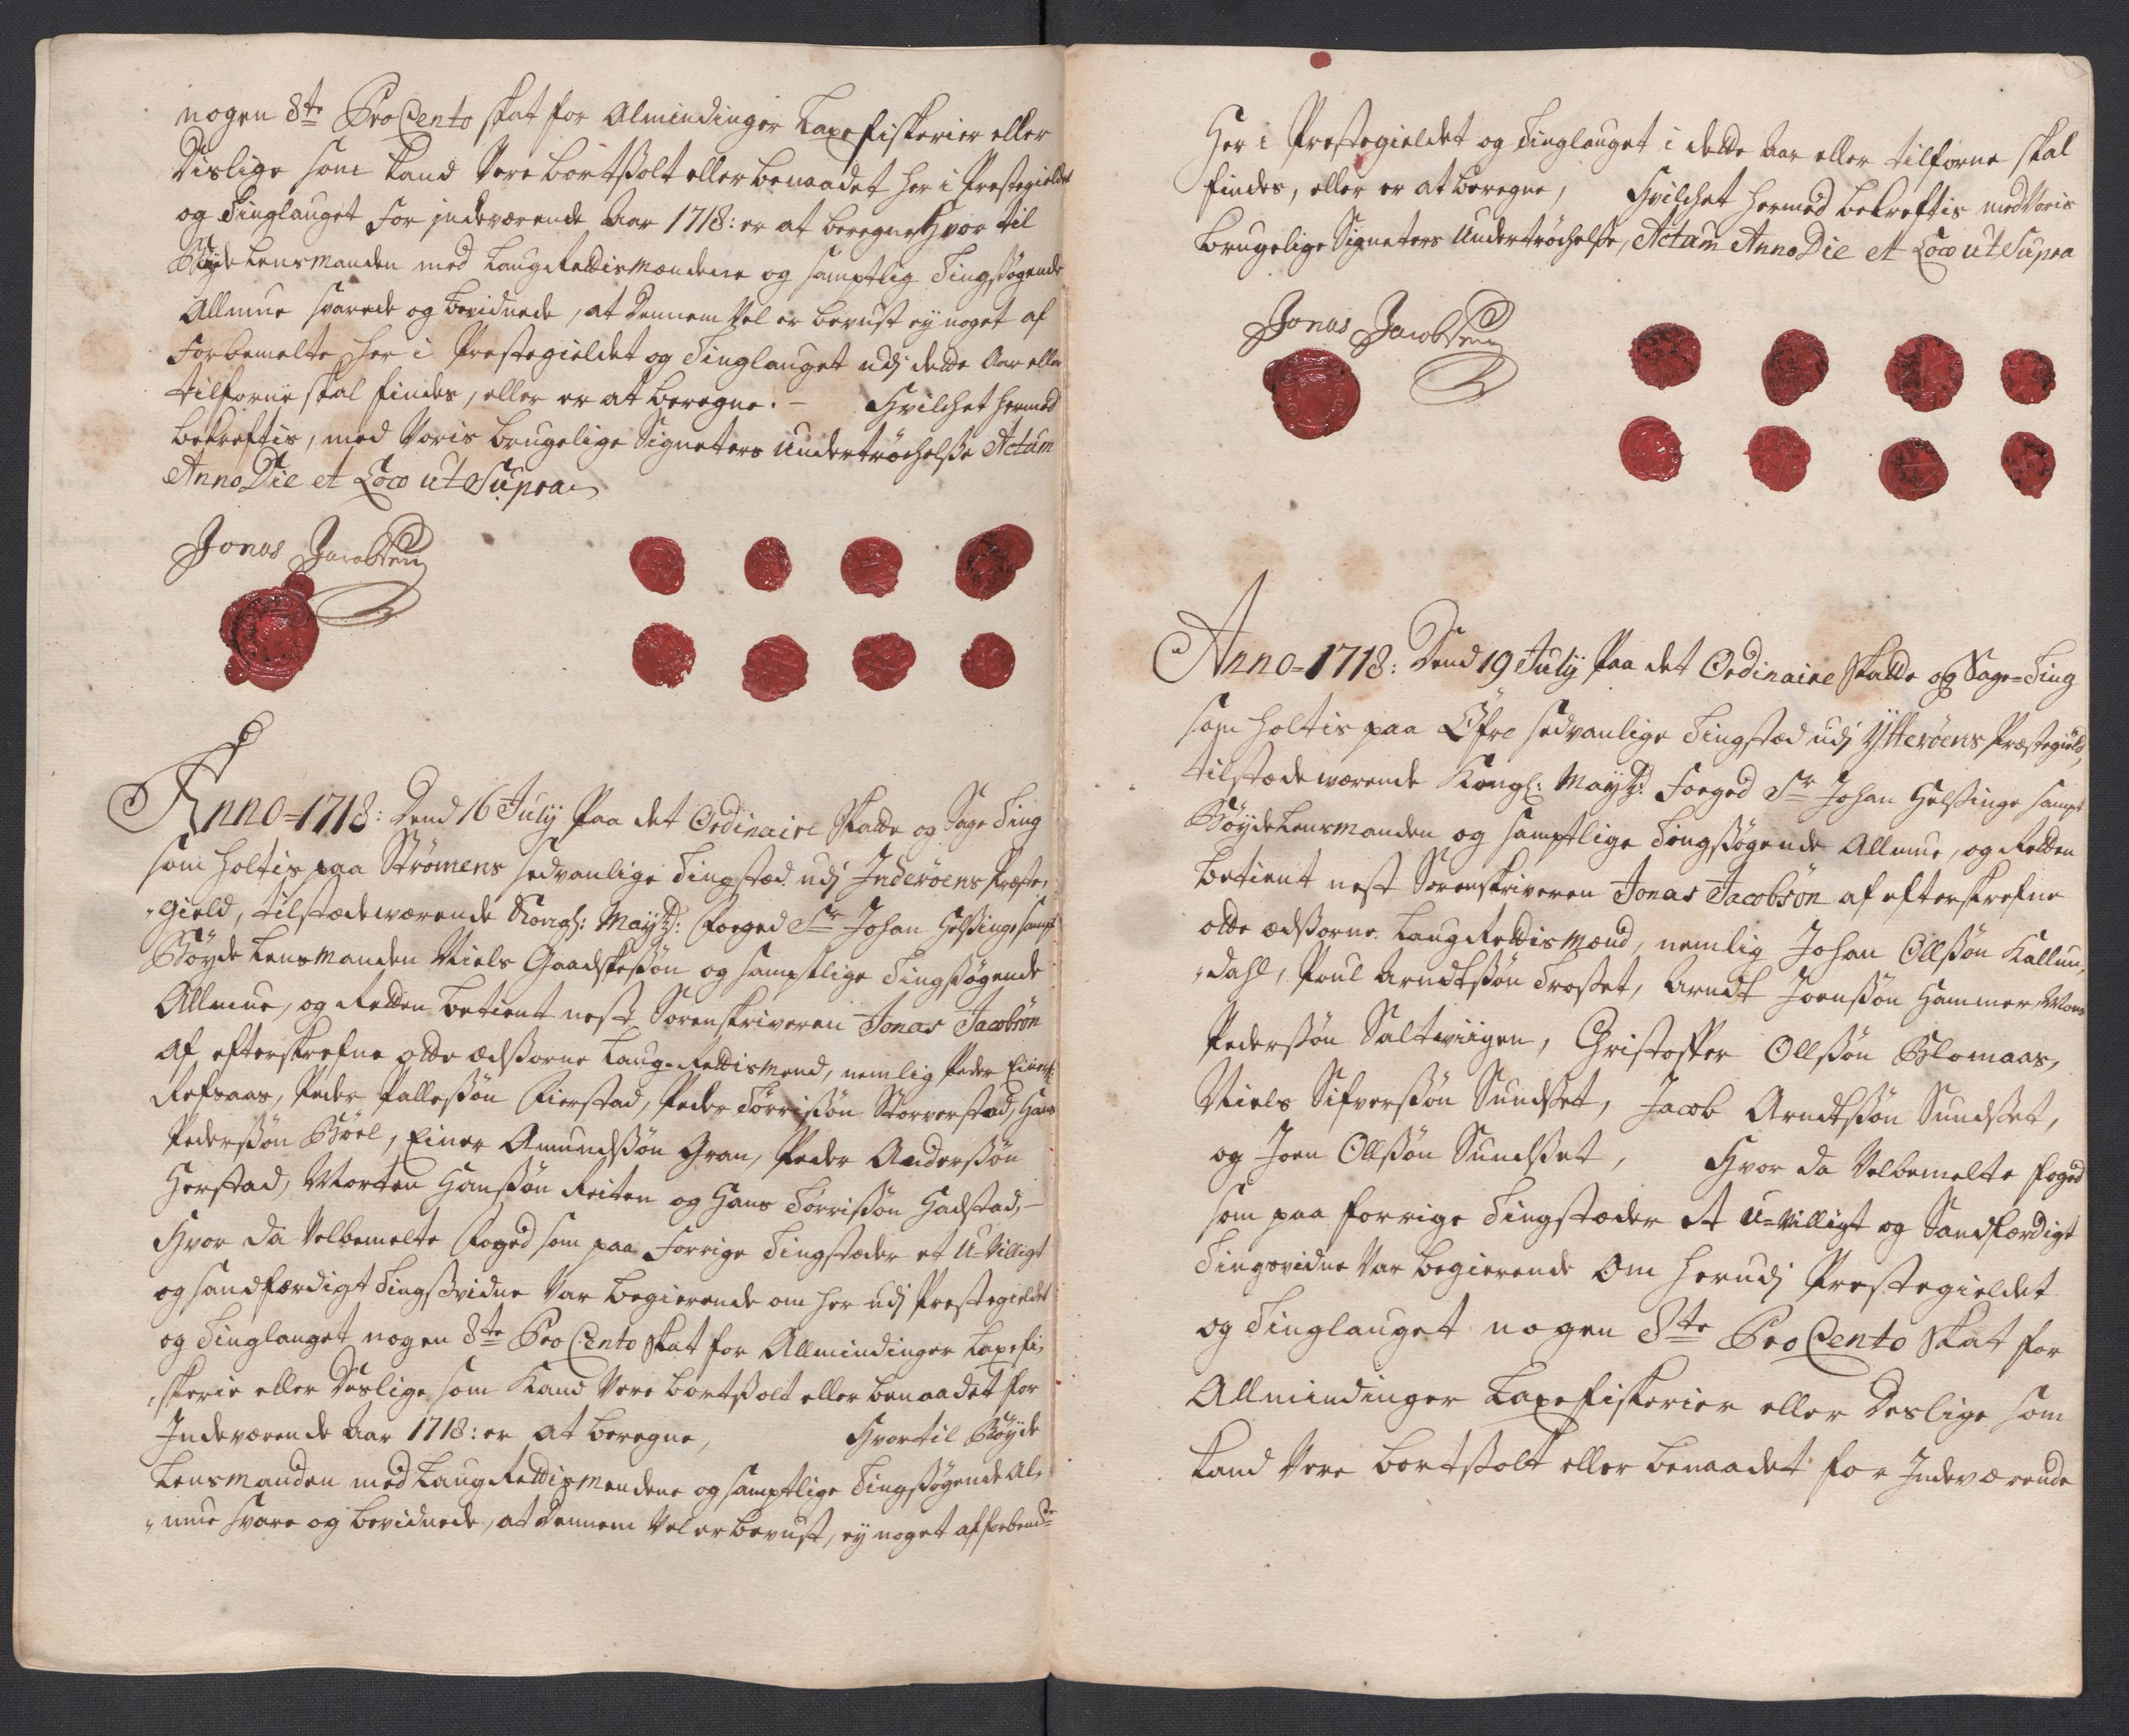 nogen 8te ProCento skat for Almindinger Laxefiskerier eller
Dislige som kand Vere bortsolt eller benaadet her i Prestegieldet
og Tinglauget for jndeværende Aar 1718: er at beregne Hvor til
Bøyde Lensmanden med Laugrettismændene og samptlig Tingsøgende
Allmue svarede og bevidnede, at dennem Vel er bevust ey noget af
forbemelte her i Prestegieldet og Tinglauget udj dette Aar eller
tilforne skal findes, eller er at beregne. - Hvilchet hermed
bekreftis, med Voris brugelige Signeters undertrøchelsse Actum
Anno Die et Loco ut Supra
Jonas Jacobsen
Anno=1718: Dend 16 July Paa det Ordinaire Skatte og Sage Ting
som holtis paa Strømens sedvanlige Tingsted udj Inderøens Præste-
gield, tilstædeværende Kongl: Mayts: Foeged Sr Johan Helssinge sampt
Bøyde Lensmanden Niels Gaadskessøn og samptlige Tingsøgende
Allmue, og Retten betient nest Sorenskriveren Jonas Jacobsøn
af efterskrefne otte ædsorne Laug-Rettismend, nemlig Peder Einers:
Refsaas, Peder Pallessøn Fierstad, Peder Tørrissøn Storverstad, Hans
Pederssøn Bøel, Einer Amundssøn Gran, Peder Anderssøn
Herstad, Morten Hanssøn Reiten og Hans Tørrissøn Hadstad, -
Hvor da Velbemelte Foged som paa forrige Tingstæder et U-Villigt
og sandfærdigt Tingsvidne Var begierende om her udj Prestegieldet
og Tinglauget nogen 8te ProCento skat for Allmindinger Laxefi-
skerie eller Deslige som kand Vere bortsolt eller benaadet for
Indeværende Aar 1718: er at beregne, Hvortil Bøyde
Lensmanden med Laugrettismendene og samptlige Tingsøgende Al-
mue svare og bevidnede, at dennem Vel er bevust, ey noget af forbemte
Her i Prestegieldet og Tinglauget i dette Aar eller tilforne skal
findes, eller er at beregne, Hvilchet hermed bekreftis med Voris
brugelige Signeters Undertrøchelsse, Actum Anno Die et Loco ut Supra
Jonas Jacobsen
Anno=1718: Dend 19 July Paa det Ordinaire Skatte og Sage=Ting
som holtis paa Øfre sedvanlige Tingstæd udj Ytterøens Præstegield,
tilstædeværende Kongl: Mayts: Foeged Sr Johan Helssinge sampt
Bøyde Lensmanden og samptlige Tingsøgende Allmue, og Retten
betient nest Sorenskriveren Jonas Jacobsøn af efterskrefne
otte ædsorne Laugrettismænd, nemlig Johan Ollssøn Kallum-
dahl, Poul Arndtssøn Trosset, Arndt Joenssøn Hammer, Mons
Pederssøn Saltwiigen, Christopher Ollssøn Blomaas,
Niels Sifverssøn Sundset, Jacob Arndtssøn Sundset,
og Joen Ollssøn Sundset, Hvor da Velbemelte foged
som paa forrige Tingstæder et U-Villigt og Sandfærdigt
Tingsvidne Var begierende Om herudj Prestegieldet
og Tinglauget nogen 8te ProCento skat for
Allmindinger Laxefiskerier eller Deslige som
kand Vere bortsolt eller benaadet for Indeværende